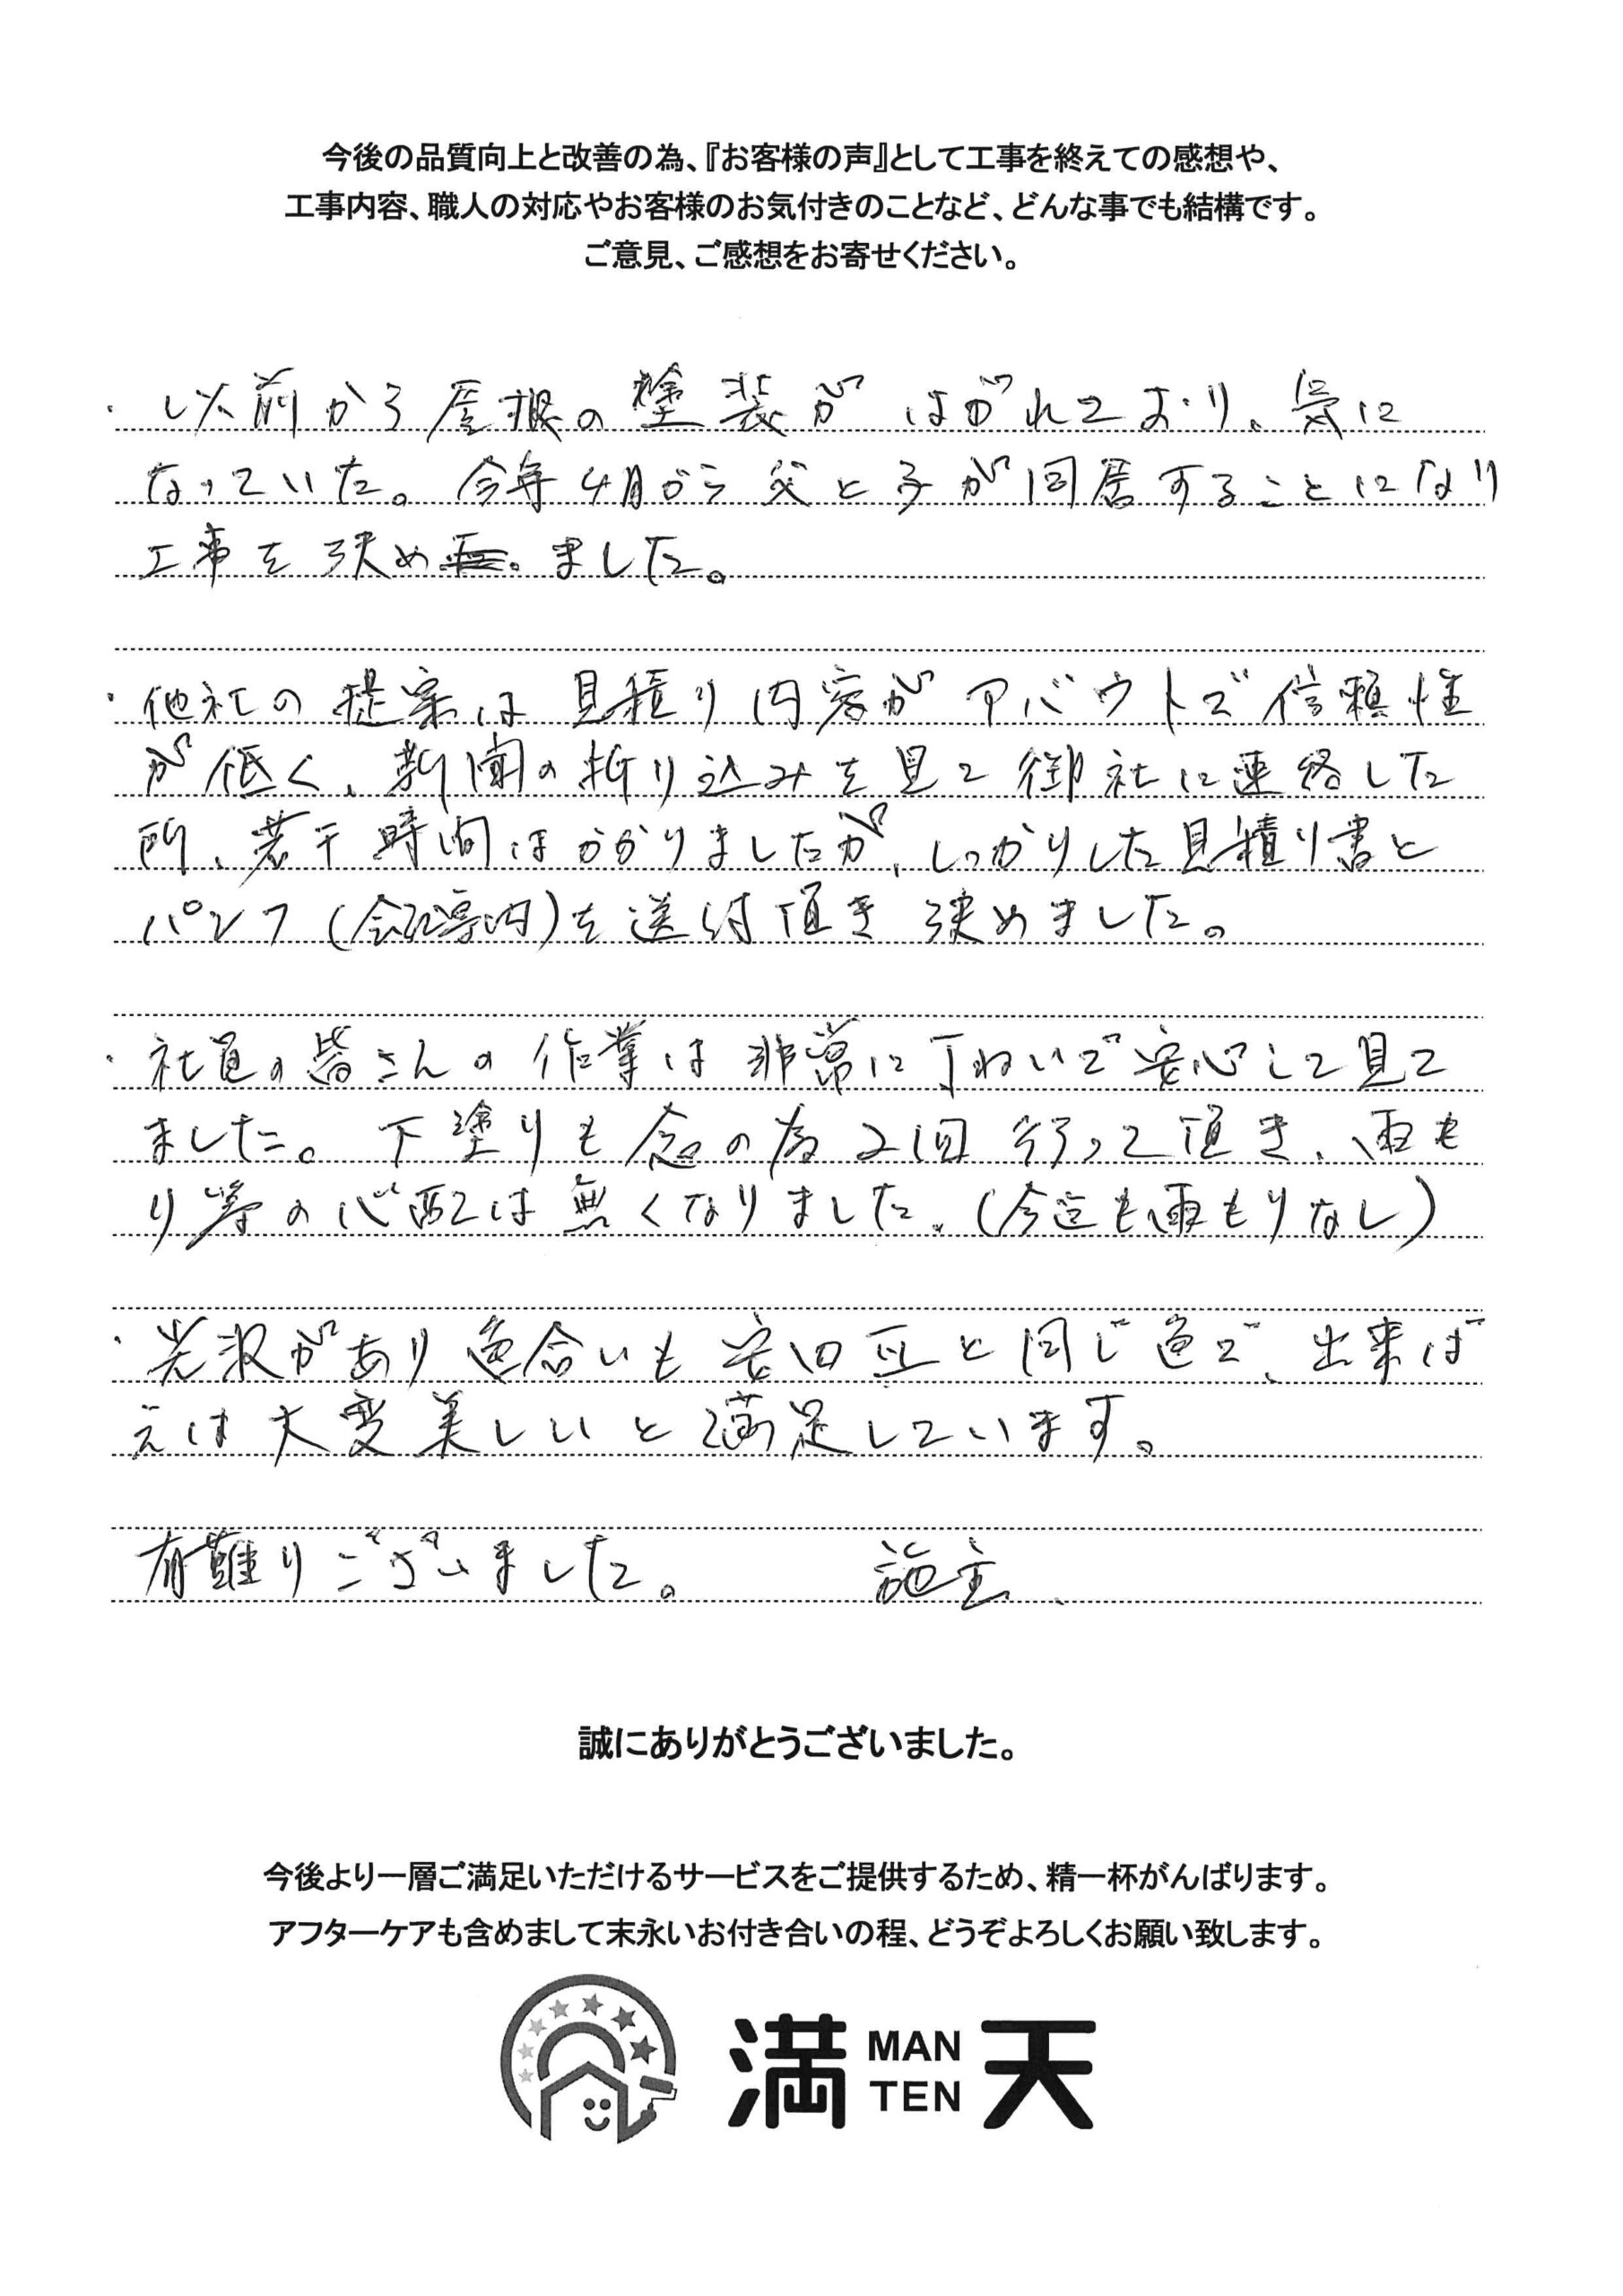 今後の品質向上と改善の為、『お客様の声』として工事を終えての感想や、
工事内容、職人の対応やお客様のお気付きのことなど、どんな事でも結構です。
ご意見、ご感想をお寄せください。
・以前から屋根の塗装がはがれており、気に
なっていた。今年4月から父と子が同居することになり
工事を決めました。
・他社の提案は見積り内容がアバウトで信頼性
が低く、新聞の折り込みを見て御社に連絡した
所、若干時間はかかりましたが、しっかりした見積り書と
パンフ(会社案内)を送付頂き決めました。
・社員の皆さんの作業は非常に丁ねいで安心して見て
ました。下塗りも念の為2回行って頂き、雨も
り等の心配は無くなりました。(今迄も雨もりなし)
・光沢があり色合いもと同じ色で、出来ば
えは大変美しいと満足しています。
有難りございました。 施主、
誠にありがとうございました。
今後より一層ご満足いただけるサービスをご提供するため、精一杯がんばります。
アフターケアも含めまして末永いお付き合いの程、どうぞよろしくお願い致します。
満 MAN TEN 天